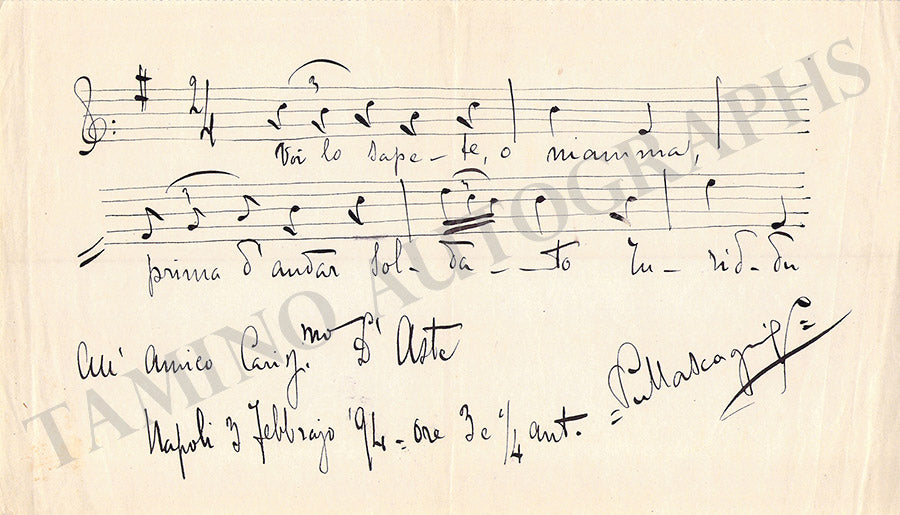 3
2/4
Voi lo sape-te, o mamma,
3
3
prima d'andar sol-da--to Tu-rid-du
All' Amico Cariss.mo D'Aste
Napoli 3 Febbrajo '94 = ore 3 e 1/4 ant. = PMascagni =
TAMINO AUTOGRAPHS